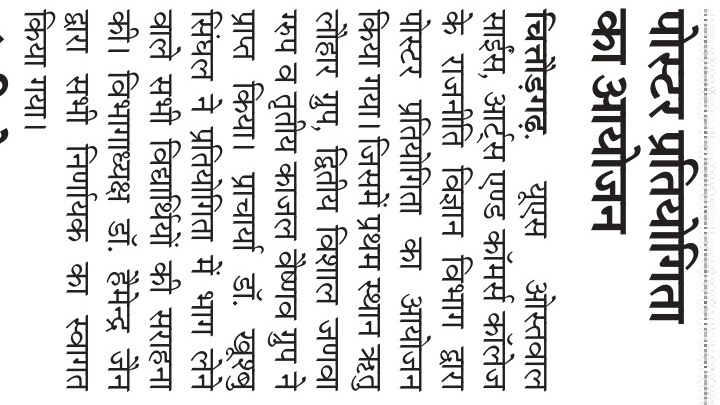 पोस्टर प्रतियोगिता
का आयोजन
चित्तौड़गढ़. यूएम ओस्तवाल
साइंस, आर्ट्स एण्ड कॉमर्स कॉलेज
के राजनीति विज्ञान विभाग द्वारा
पोस्टर प्रतियोगिता का आयोजन
किया गया। जिसमें प्रथम स्थान ऋतु
लौहार ग्रुप, द्वितीय विशाल जणवा
ग्रुप व तृतीय काजल वैष्णव ग्रुप ने
प्राप्त किया। प्राचार्या डॉ. खुश्बु
सिंघल ने प्रतियोगिता में भाग लेने
वाले सभी विद्यार्थियों की सराहना
की। विभागाध्यक्ष डॉ. हेमेन्द्र जैन
द्वारा सभी निर्णायक का स्वागत
किया गया।